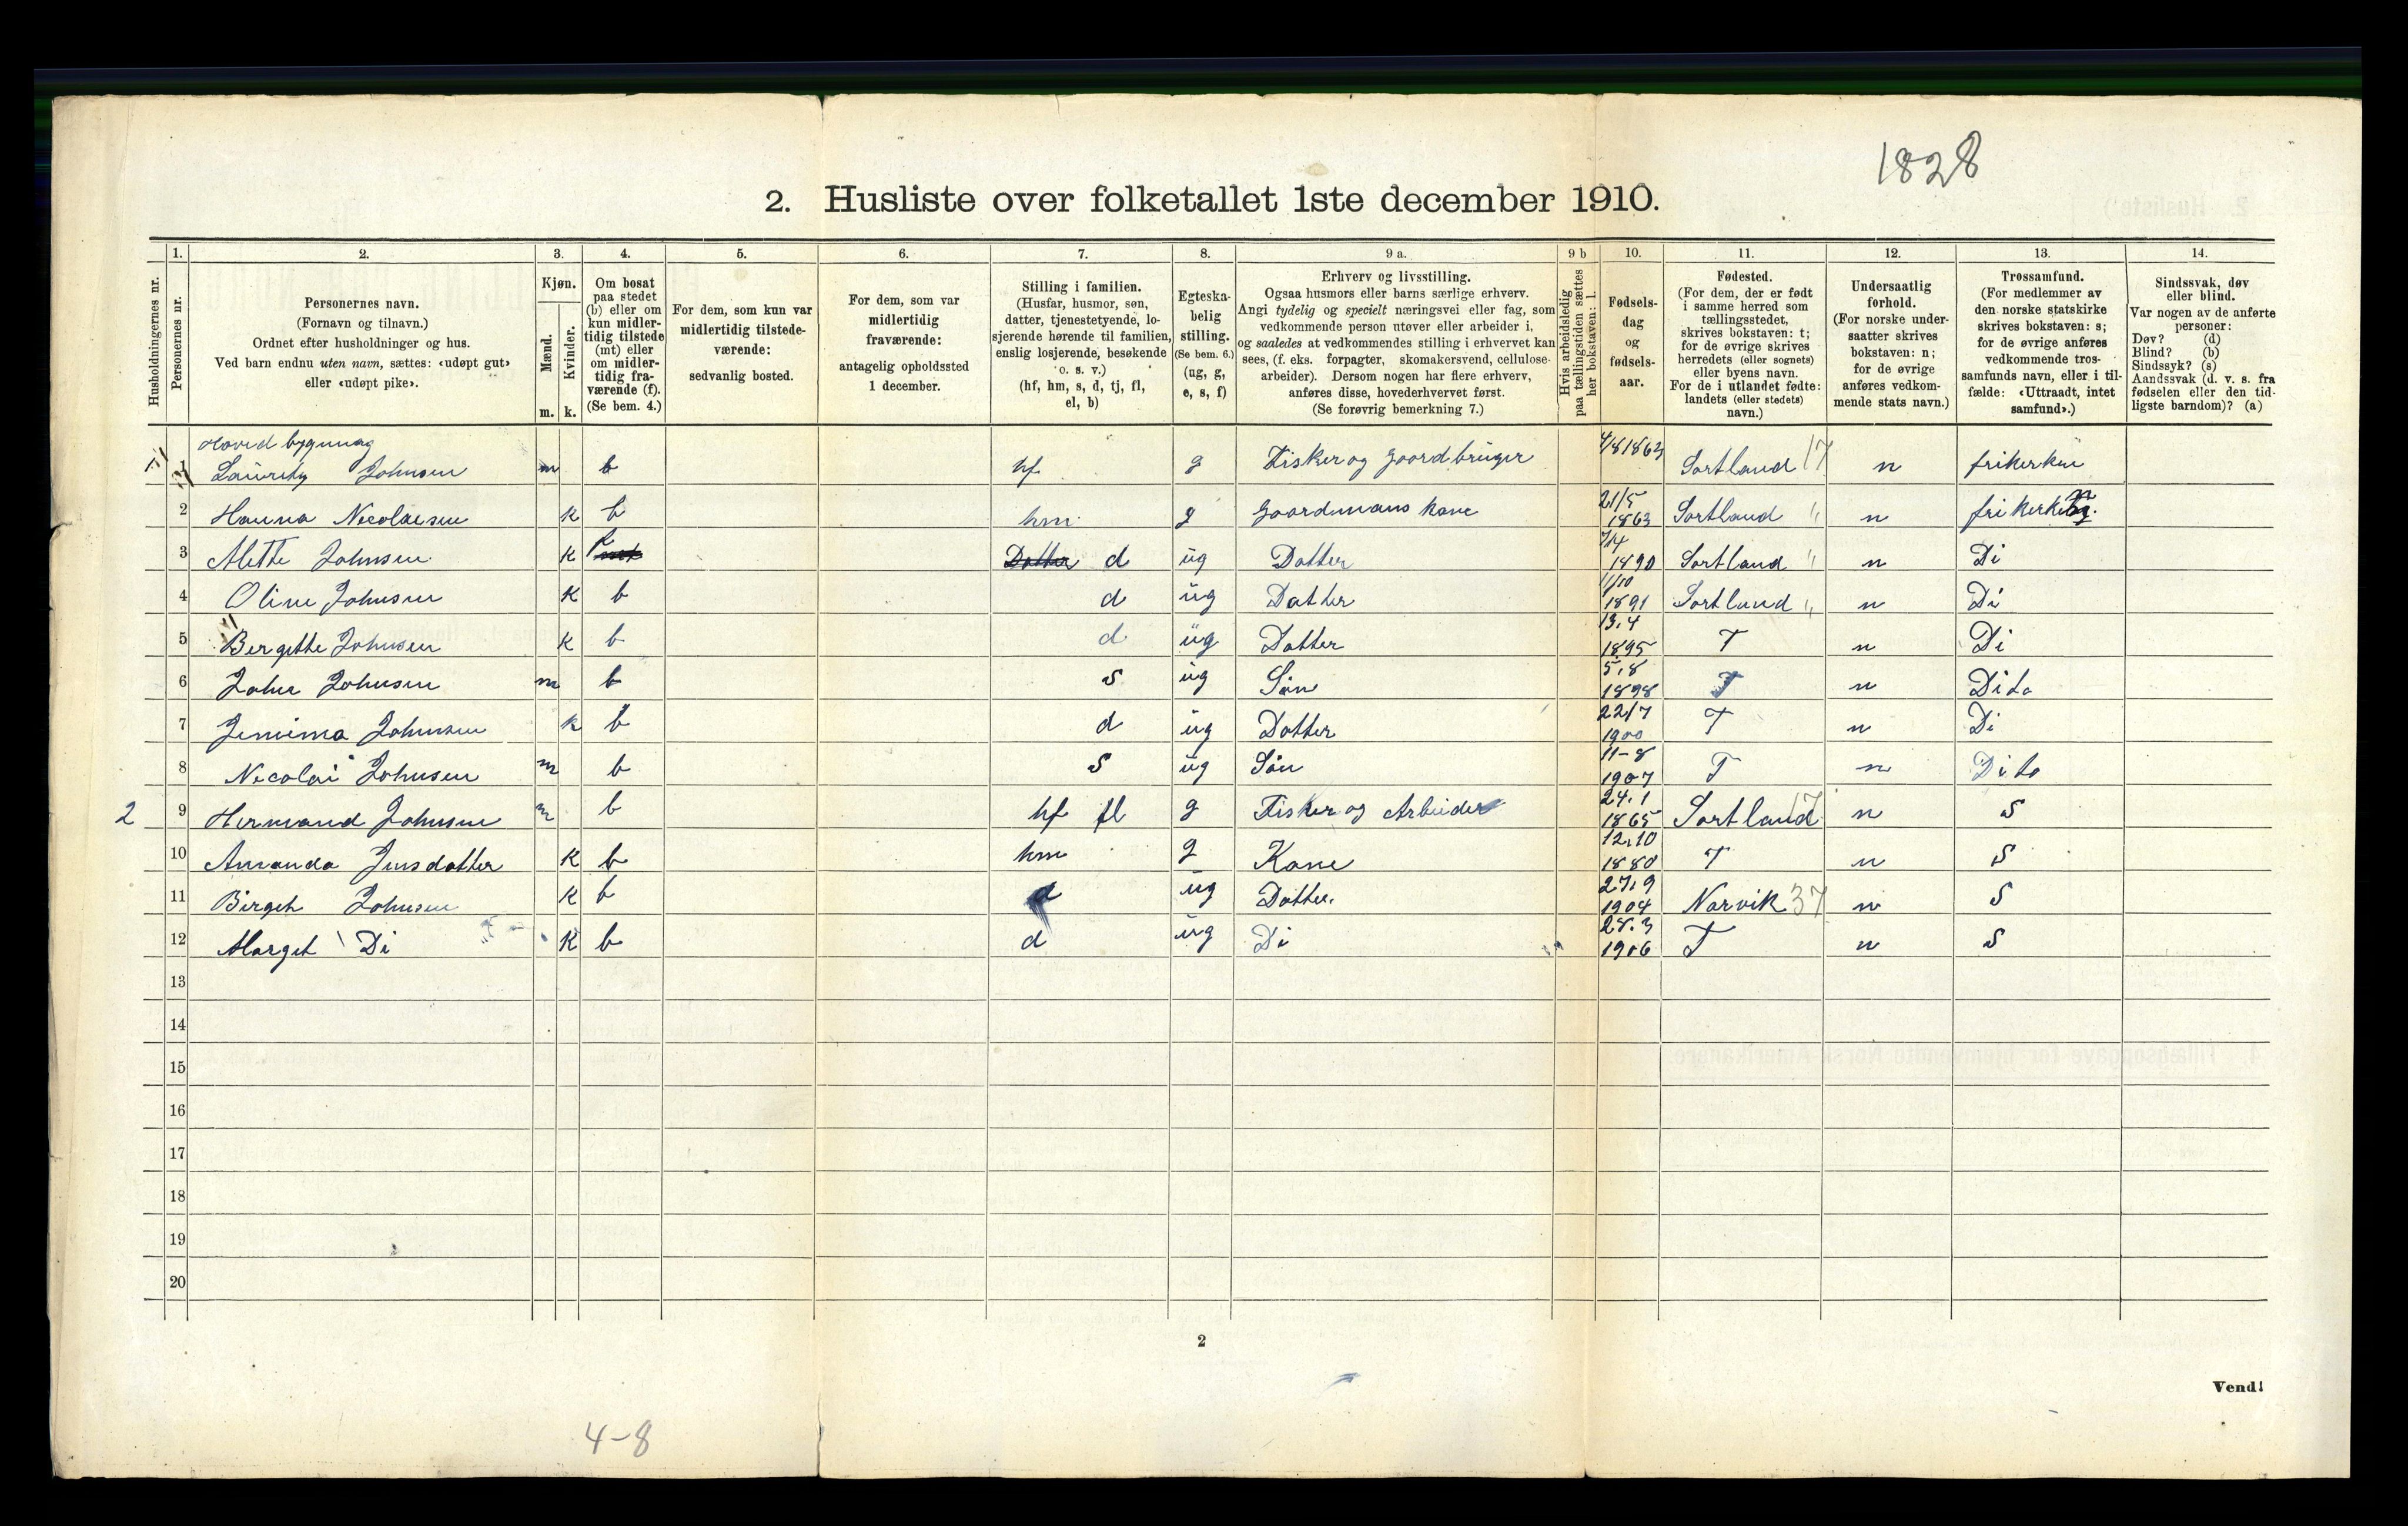 1828
2. Husliste over folketallet 1ste december 1910.
Husholdningernes nr.
1.
Personernes nr.
2.
Personernes navn.
(Fornavn og tilnavn.)
Ordnet efter husholdninger og hus.
Ved barn endnu uten navn, sættes: «udøpt gut»
eller «udøpt pike».
3.
Kjøn.
Mænd.
Kvinder.
m. k.
4.
Om bosat
paa stedet
(b) eller om
kun midler-
tidig tilstede
(mt) eller
om midler-
tidig fra-
værende (f).
(Se bem. 4.)
5.
For dem, som kun var
midlertidig tilstede-
værende:
sedvanlig bosted.
6.
For dem, som var
midlertidig
fraværende:
antagelig opholdssted
1 december.
7.
Stilling i familien.
(Husfar, husmor, søn,
datter, tjenestetyende, lo-
sjerende hørende til familien,
enslig losjerende, besøkende
o. s. v.)
(hf, hm, s, d, tj, fl,
el, b)
8.
Egteska-
belig
stilling.
(Se bem. 6.)
(ug, g,
e, s, f)
9 a.
Erhverv og livsstilling.
Ogsaa husmors eller barns særlige erhverv.
Angi tydelig og specielt næringsvei eller fag, som
vedkommende person utøver eller arbeider i,
og saaledes at vedkommendes stilling i erhvervet kan
sees, (f. eks. forpagter, skomakersvend, cellulose-
arbeider). Dersom nogen har flere erhverv,
anføres disse, hovederhvervet først.
(Se forøvrig bemerkning 7.)
9 b
Hvis arbeidsledig
paa tællingstiden sættes
her bokstaven: l.
10.
Fødsels-
dag
og
fødsels-
aar.
11.
Fødested.
(For dem, der er født
i samme herred som
tællingsstedet,
skrives bokstaven: t;
for de øvrige skrives
herredets (eller sognets)
eller byens navn.
For de i utlandet fødte:
landets (eller stedets)
navn.)
12.
Undersaatlig
forhold.
(For norske under-
saatter skrives
bokstaven: n;
for de øvrige
anføres vedkom-
mende stats navn.)
13.
Trossamfund.
(For medlemmer av
den norske statskirke
skrives bokstaven: s;
for de øvrige anføres
vedkommende tros-
samfunds navn, eller i til-
fælde: «Uttraadt, intet
samfund».)
14.
Sindssvak, døv
eller blind.
Var nogen av de anførte
personer:
Døv? (d)
Blind? (b)
Sindssyk? (s)
Aandssvak (d. v. s. fra
fødselen eller den tid-
ligste barndom)? (a)
Hovedbygning
1 1 Lauritz Johnsen m b hf g Fisker og Gaardbruger 4/8 1863 Sortland 17 n frikerken
2 Hanna Nicolaisen k b hm g Gaardmans kone 21/5 1863 Sortland " n frikerken
3 Alette Johnsen k d ug Datter 7/4 1890 Sortland " n Di
4 Oline Johnsen k b d ug Datter 11/10 1891 Sortland " n Di
5 Bergitte Johnsen k b d ug Datter 13.4 1895 T n Di
6 Johan Johnsen m b s ug Søn 5.8 1898 T n Dito
7 Jemima Johnsen k b d ug Datter 22/7 1900 T n Di
8 Nicolai Johnsen m b s ug Søn 11-8 1907 T n Dito
2 9 Hermand Johnsen m b hf fl g Fisker og Arbeider 24.1 1865 Sortland 17 n S
10 Amanda Jensdatter k b hm g Kone 12.10 1880 T n S
11 Birget Johnsen k b d ug Datter. 27.9 1904 Narvik 37 n S
12 Marget Di k b d ug Di 28.3 1906 T n S
13
14
15
16
17
18
19
20
2
Vend!
4-8